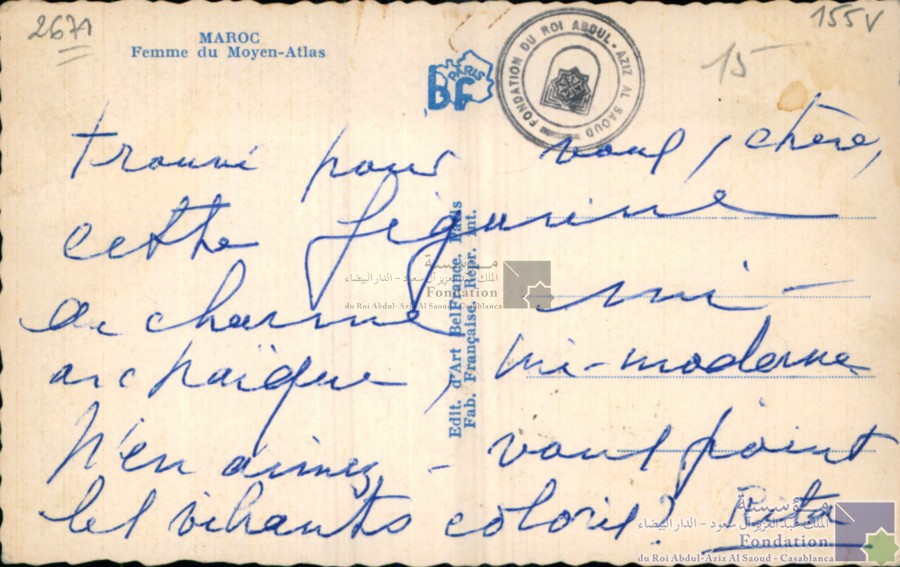 2671
155V
15
MAROC
Femme du Moyen-Atlas
PARIS
BF
FONDATION DU ROI ABDUL-AZIZ AL SAOUD
trouvé pour vous, chère,
cette figurine
au charme mi-
archaïque, mi-moderne
N'en aimez-vous point
les vibrants coloris? Rita
Edit. d'Art BelFrance. Paris
Fab. Française. Repr. int.
مؤسسة
الملك عبد العزيز آل سعود - الدار البيضاء
Fondation
du Roi Abdul-Aziz Al Saoud - Casablanca
مؤسسة
الملك عبد العزيز آل سعود - الدار البيضاء
Fondation
du Roi Abdul-Aziz Al Saoud - Casablanca